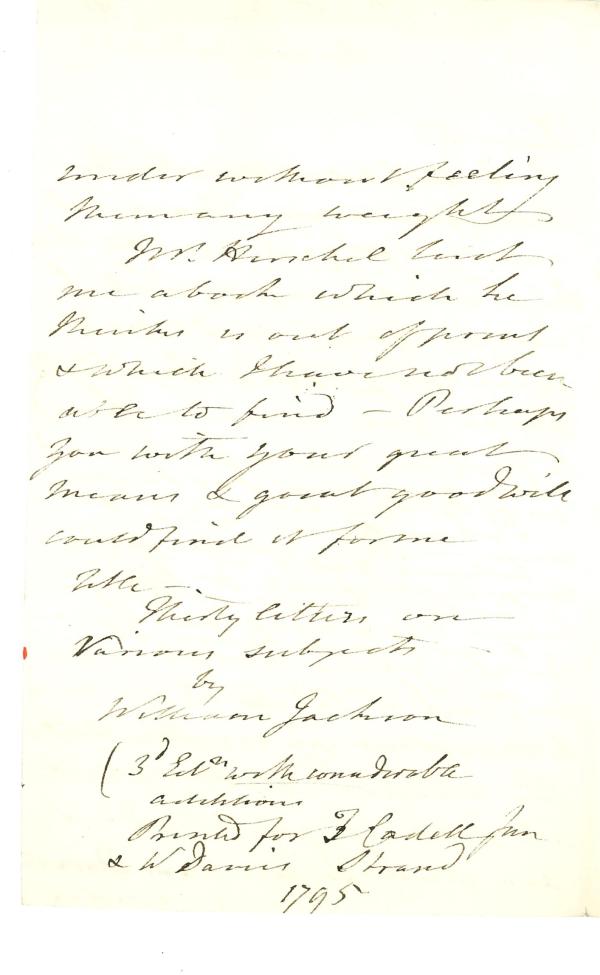 under without feeling
them any weight
Mr. Herschel lent
me a book which he
thinks is out of print
& which I have not been
able to find — Perhaps
you with your great
means & great good will
could find it for me
title —
Thirty letters on
Various subjects —
by
William Jackson
(3d Edn with considerable
additions
Printed for T Cadell Jun
& W Davis Strand
1795